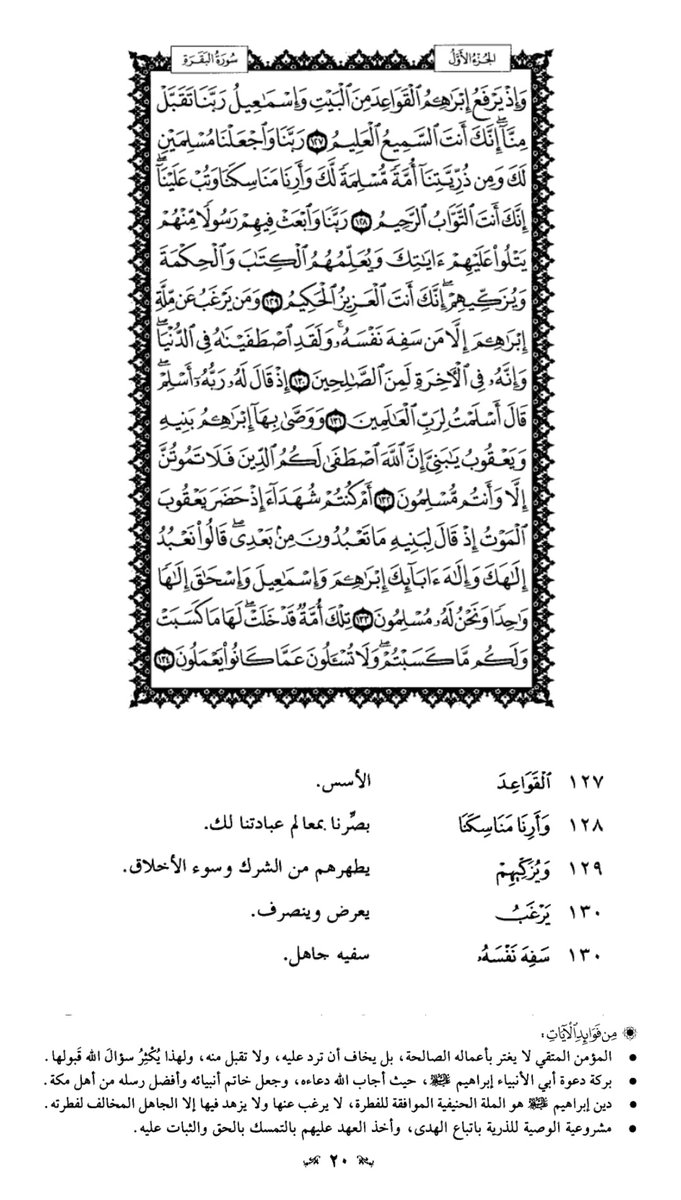 الجزء الأول
سورة البقرة
وَإِذْ يَرْفَعُ إِبْرَٰهِـۧمُ ٱلْقَوَاعِدَ مِنَ ٱلْبَيْتِ وَإِسْمَٰعِيلُ رَبَّنَا تَقَبَّلْ
مِنَّآ ۖ إِنَّكَ أَنتَ ٱلسَّمِيعُ ٱلْعَلِيمُ ١٢٧ رَبَّنَا وَٱجْعَلْنَا مُسْلِمَيْنِ
لَكَ وَمِن ذُرِّيَّتِنَآ أُمَّةً مُّسْلِمَةً لَّكَ وَأَرِنَا مَنَاسِكَنَا وَتُبْ عَلَيْنَآ ۖ
إِنَّكَ أَنتَ ٱلتَّوَّابُ ٱلرَّحِيمُ ١٢٨ رَبَّنَا وَٱبْعَثْ فِيهِمْ رَسُولًا مِّنْهُمْ
يَتْلُوا۟ عَلَيْهِمْ ءَايَٰتِكَ وَيُعَلِّمُهُمُ ٱلْكِتَٰبَ وَٱلْحِكْمَةَ
وَيُزَكِّيهِمْ ۚ إِنَّكَ أَنتَ ٱلْعَزِيزُ ٱلْحَكِيمُ ١٢٩ وَمَن يَرْغَبُ عَن مِّلَّةِ
إِبْرَٰهِـۧمَ إِلَّا مَن سَفِهَ نَفْسَهُۥ ۚ وَلَقَدِ ٱصْطَفَيْنَٰهُ فِى ٱلدُّنْيَا ۖ
وَإِنَّهُۥ فِى ٱلْءَاخِرَةِ لَمِنَ ٱلصَّٰلِحِينَ ١٣٠ إِذْ قَالَ لَهُۥ رَبُّهُۥٓ أَسْلِمْ ۖ
قَالَ أَسْلَمْتُ لِرَبِّ ٱلْعَٰلَمِينَ ١٣١ وَوَصَّىٰ بِهَآ إِبْرَٰهِـۧمُ بَنِيهِ
وَيَعْقُوبُ يَٰبَنِىَّ إِنَّ ٱللَّهَ ٱصْطَفَىٰ لَكُمُ ٱلدِّينَ فَلَا تَمُوتُنَّ
إِلَّا وَأَنتُم مُّسْلِمُونَ ١٣٢ أَمْ كُنتُمْ شُهَدَآءَ إِذْ حَضَرَ يَعْقُوبَ
ٱلْمَوْتُ إِذْ قَالَ لِبَنِيهِ مَا تَعْبُدُونَ مِنۢ بَعْدِى ۖ قَالُوا۟ نَعْبُدُ
إِلَٰهَكَ وَإِلَٰهَ ءَابَآئِكَ إِبْرَٰهِـۧمَ وَإِسْمَٰعِيلَ وَإِسْحَٰقَ إِلَٰهًا
وَٰحِدًا وَنَحْنُ لَهُۥ مُسْلِمُونَ ١٣٣ تِلْكَ أُمَّةٌ قَدْ خَلَتْ ۖ لَهَا مَا كَسَبَتْ
وَلَكُم مَّا كَسَبْتُمْ ۖ وَلَا تُسْـَٔلُونَ عَمَّا كَانُوا۟ يَعْمَلُونَ ١٣٤
١٢٧ ٱلْقَوَاعِدَ الأسس.
١٢٨ وَأَرِنَا مَنَاسِكَنَا بصِّرنا بمعالم عبادتنا لك.
١٢٩ وَيُزَكِّيهِمْ يطهرهم من الشرك وسوء الأخلاق.
١٣٠ يَرْغَبُ يعرض وينصرف.
١٣٠ سَفِهَ نَفْسَهُۥ سفيه جاهل.
مِن فَوَائِدِ الْآيَاتِ:
• المؤمن المتقي لا يغتر بأعماله الصالحة، بل يخاف أن ترد عليه، ولا تقبل منه، ولهذا يُكْثِرُ سؤالَ الله قَبولها.
• بركة دعوة أبي الأنبياء إبراهيم ﷺ، حيث أجاب الله دعاءه، وجعل خاتم أنبيائه وأفضل رسله من أهل مكة.
• دين إبراهيم ﷺ هو الملة الحنيفية الموافقة للفطرة، لا يرغب عنها ولا يزهد فيها إلا الجاهل المخالف لفطرته.
• مشروعية الوصية للذرية باتباع الهدى، وأخذ العهد عليهم بالتمسك بالحق والثبات عليه.
٢٠